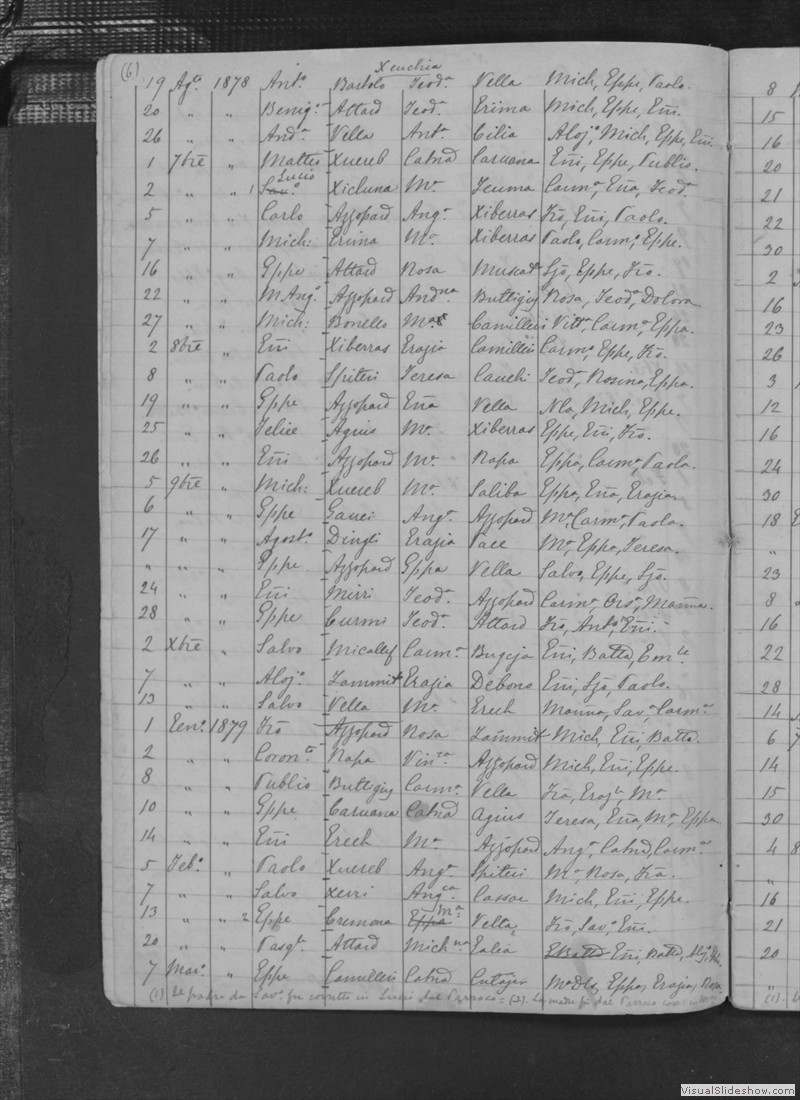 (6) Xeuchia
19 Ag.to 1878 Ant.o Bartolo Teod.a Vella Mich, Gppe, Paolo.
20 " " Benig.o Attard Teod.a Erima Mich, Gppe, Eñi.
26 " " And.a Vella Ant.a Cilia Aloj.o, Mich, Gppe, Eñi.
1 7bre " Matteo Xuereb Catnd Caruana Eñi, Gppe, Publio.
Lucio
2 " " 1 Sav.o Xicluna M.a Teuma Carm.o, Eña, Teod.a
5 " " Carlo Azzopard Ang.a Xiberras Fro, Eñi, Paolo.
7 " " Mich: Erima M.a Xiberras Paolo, Carm.o, Gppe.
16 " " Gppe Attard Rosa Muscat Sjo, Gppe, Fro.
22 " " M Ang.o Azzopard Andrea Buttigieg Rosa, Teod.a, Dolora
27 " " Mich: Bonello M.a Camilleri Vitt.a, Carm.a, Gppa.
2 8bre " Eñi Xiberras Grazia Camilleri Carm.o, Gppe, Fro.
8 " " Paolo Spiteri Teresa Cauchi Teod.a, Rosina, Gppa.
19 " " Gppe Azzopard Eña Vella Nla, Mich, Gppe.
25 " " Felice Agius M.a Xiberras Gppe, Eñi, Fro.
26 " " Eñi Azzopard M.a Rapa Gppa, Carm.a, Paola.
5 9bre " Mich: Xuereb M.a Saliba Gppa, Eña, Grazia.
6 " " Gppe Gauci Ang.a Azzopard M.a, Carm.a, Paola.
17 " " Agost.o Dingli Grazia Pace M.a, Gppa, Teresa.
" " " Gppe Azzopard Gppa Vella Salvo, Gppe, Sjo.
24 " " Eñi Mizzi Teod.a Azzopard Carm.a, Ors.a, Marina.
28 " " Gppe Curmi Teod.a Attard Fro, Ant.o, Eñi.
2 Xbre " Salvo Micallef Carm.a Bugeja Eñi, Batta, Em.le
7 " " Aloj.o Zammit Grazia Debono Eñi, Sjo, Paolo.
13 " " Salvo Vella M.a Grech Marina, Sav.a, Carm.a
1 Gen.o 1879 Fro Azzopard Rosa Zammit Mich, Eñi, Batta.
2 " " Coron.to Rapa Vin.za Azzopard Mich, Eñi, Gppe.
8 " " Publio Buttigieg Carm.a Vella Fra, Graz.a, M.a
10 " " Gppe Caruana Catnd Agius Teresa, Eña, M.a, Gppa.
14 " " Eñi Grech M.a Azzopard Ang.a, Catnd, Carm.a
5 Feb.o " Paolo Xuereb Ang.a Spiteri M.a, Rosa, Fra.
7 " " Salvo Xerri Ang.ca Cassar Mich, Eñi, Gppe.
13 " " 2 Gppe Cremona Gppa M.a Vella Fro, Sav.o, Eñi.
20 " " Pasq.le Attard Mich.na Galea Batta Eñi, Batta,
7 Mar.o " Gppe Camilleri Catnd Cutajar M.a Dla, Gppa, Grazia, Rosa.
(1) Il padre da Sav.o fu corretto in Lucio dal Parroco = (2). La madre fu dal Parroco
8
15
16
20
21
22
30
2
16
23
26
3
12
16
24
30
18
"
23
8
16
22
28
14
6
14
15
30
4
"
16
21
20
"
(1).
VisualSlideshow.com